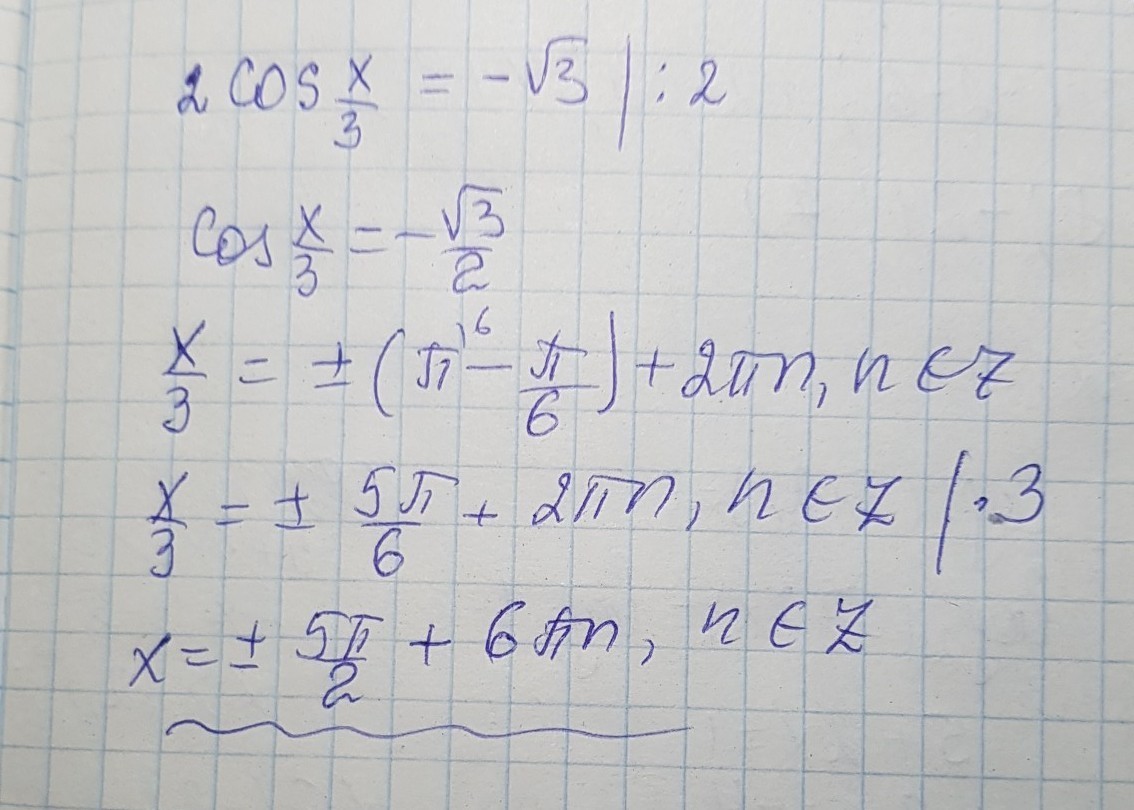 2 cos x/3 = -√3 | : 2
cos x/3 = - √3/2
x/3 = ± (π⁾⁶ - π/6) + 2πn, n ∈ Z
x/3 = ± 5π/6 + 2πn, n ∈ Z | · 3
x = ± 5π/2 + 6πn, n ∈ Z